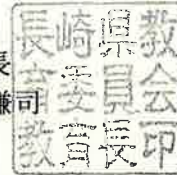 長
司
長崎県教
育委員会
教育長印